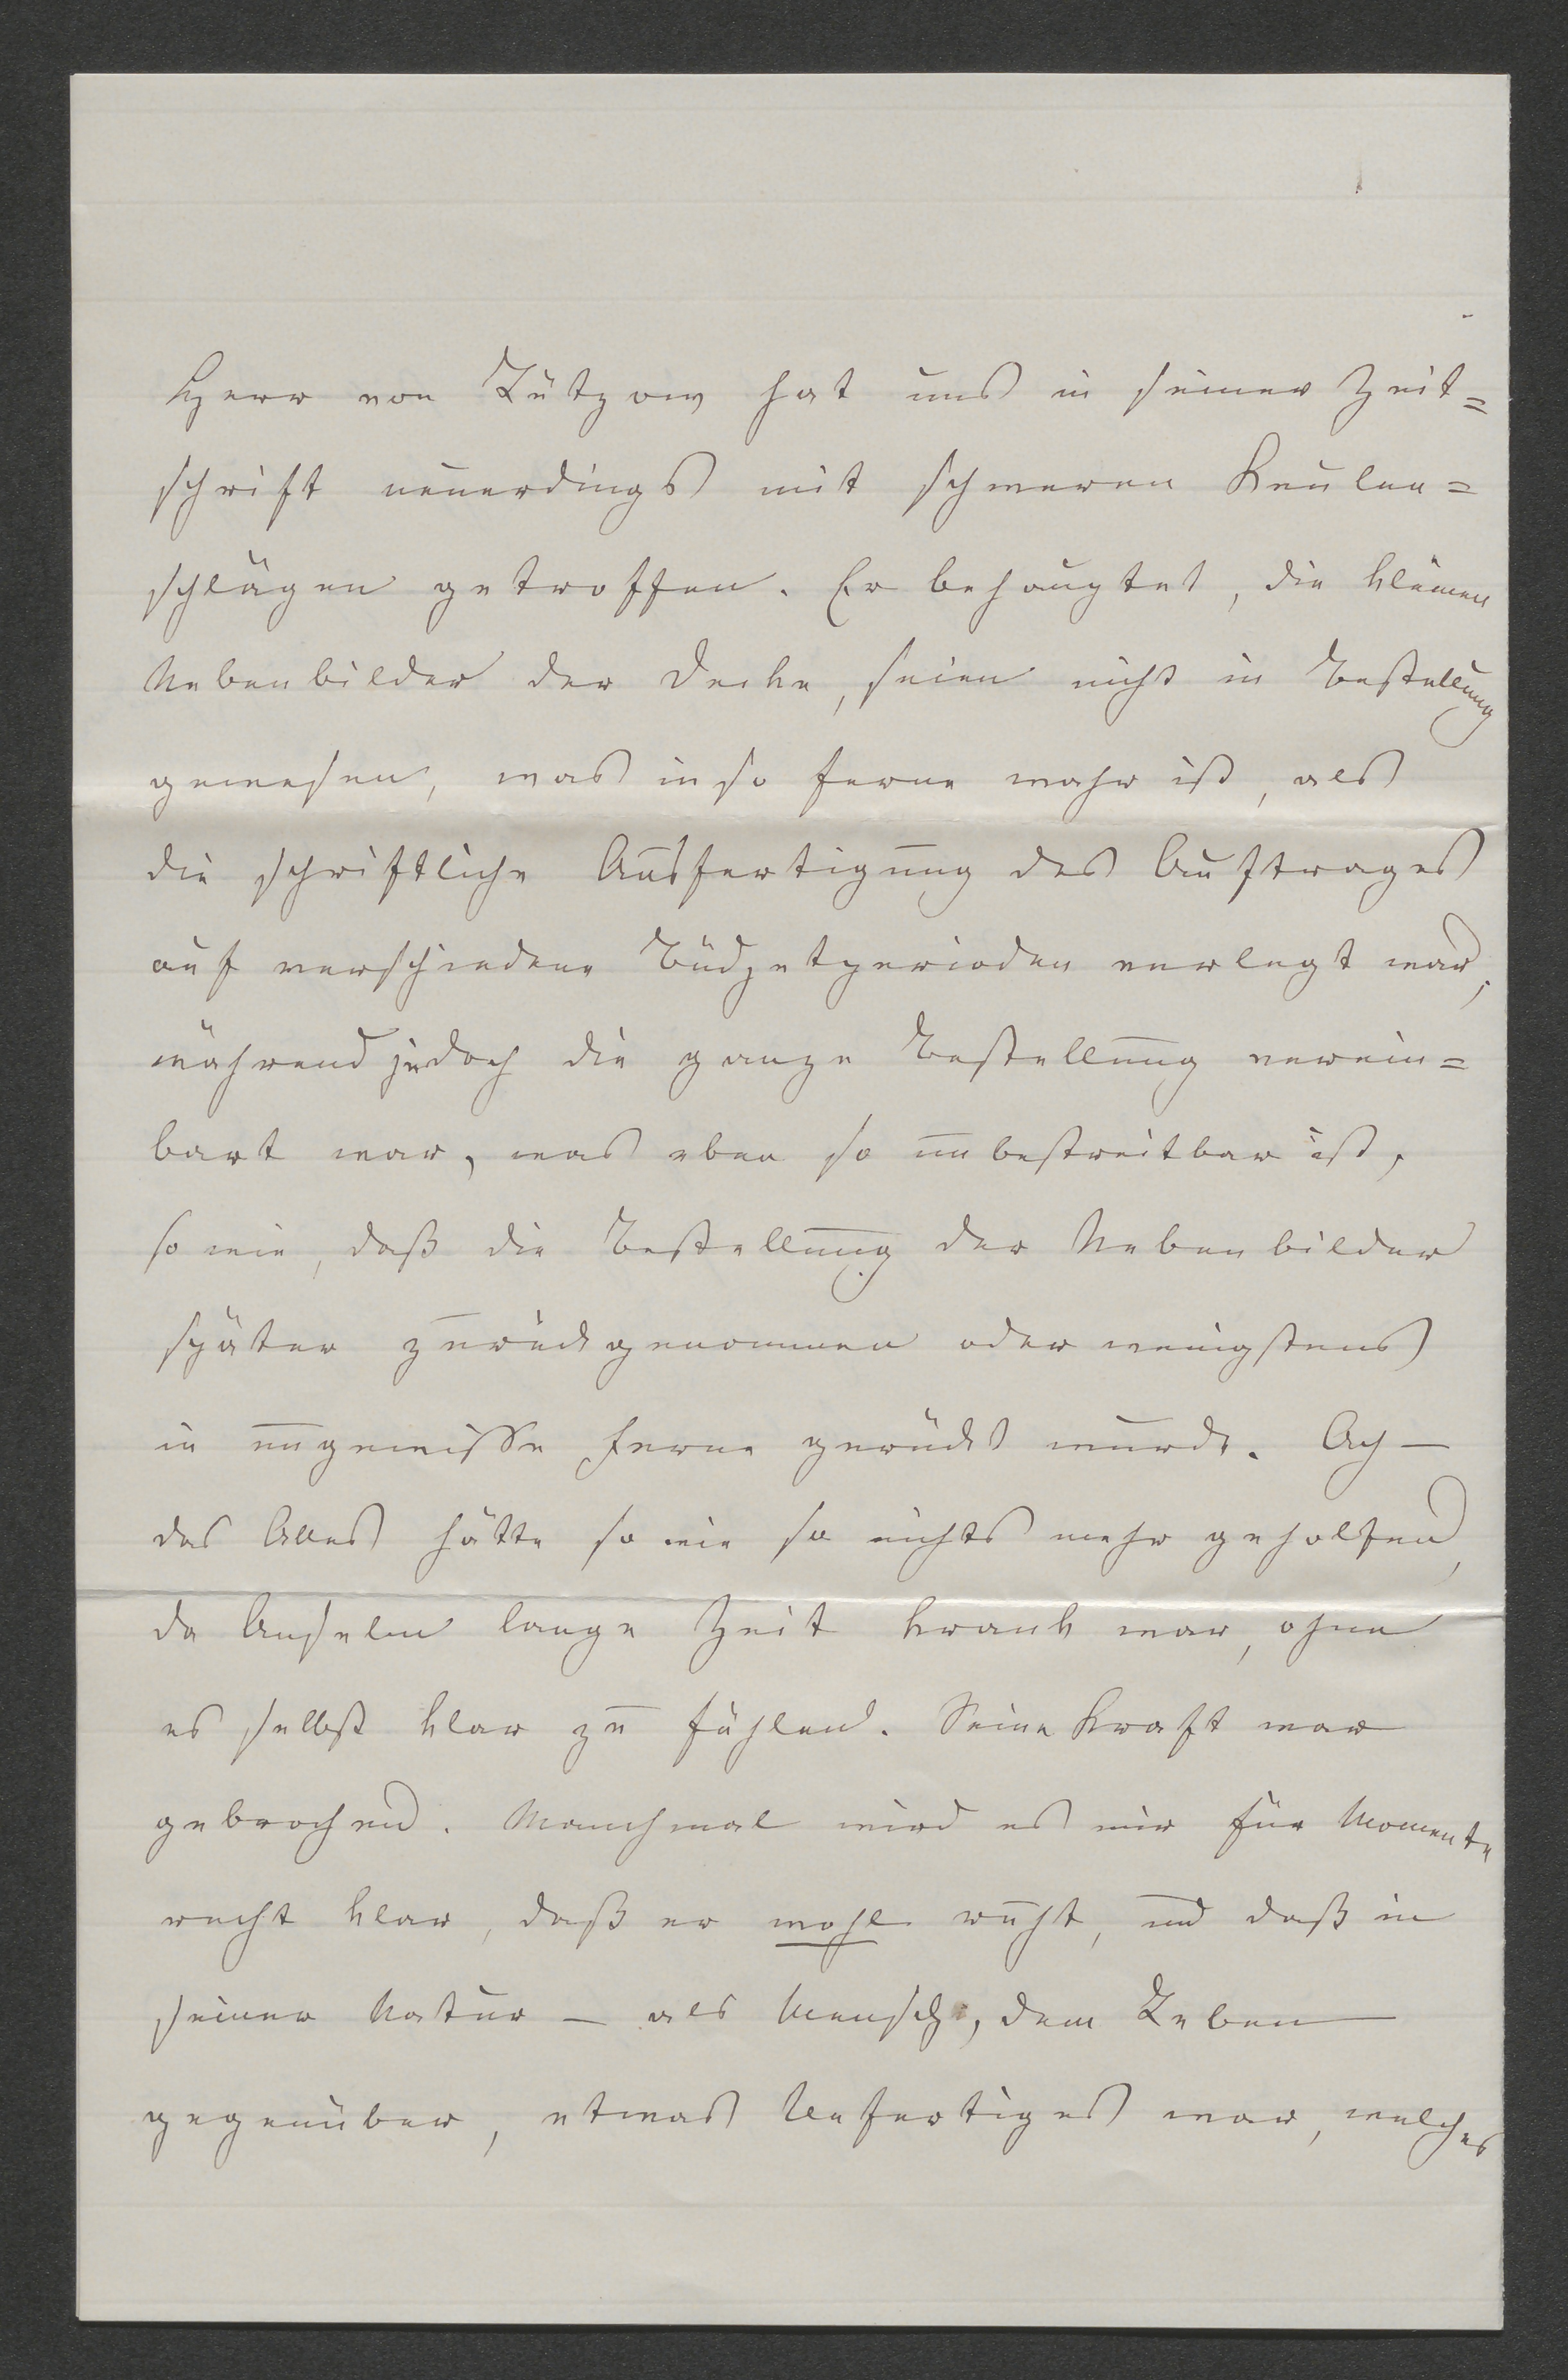 Herr von Lützow hat uns in seiner Zeit=
schrift neuerdings mit schweren Keulen=
schlägen getroffen. Er behauptet, die kleinen
Nebenbilder der Decke, seien nicht in Bestellung
gewesen, was in so ferne wahr ist, als
die schriftliche Ausfertigung des Auftrages
auf verschiedene Büdgetperioden verlegt war,
während jedoch die ganze Bestellung verein=
bart war, was eben so unbestreitbar ist,
so wie, daß die Bestellung der Nebenbilder
später zurückgenommen oder wenigstens
in ungewisse Ferne gerückt wurde. Ach —
das Alles hätte so wie so nichts mehr geholfen,
da Anselm lange Zeit krank war, ohne
es selbst klar zu fühlen. Seine Kraft war
gebrochen. Manchmal wird es mir für Momente
recht klar, daß er wohl ruht, und daß in
seiner Natur — als Mensch, dem Leben
gegenüber, etwas Unfertiges war, welches